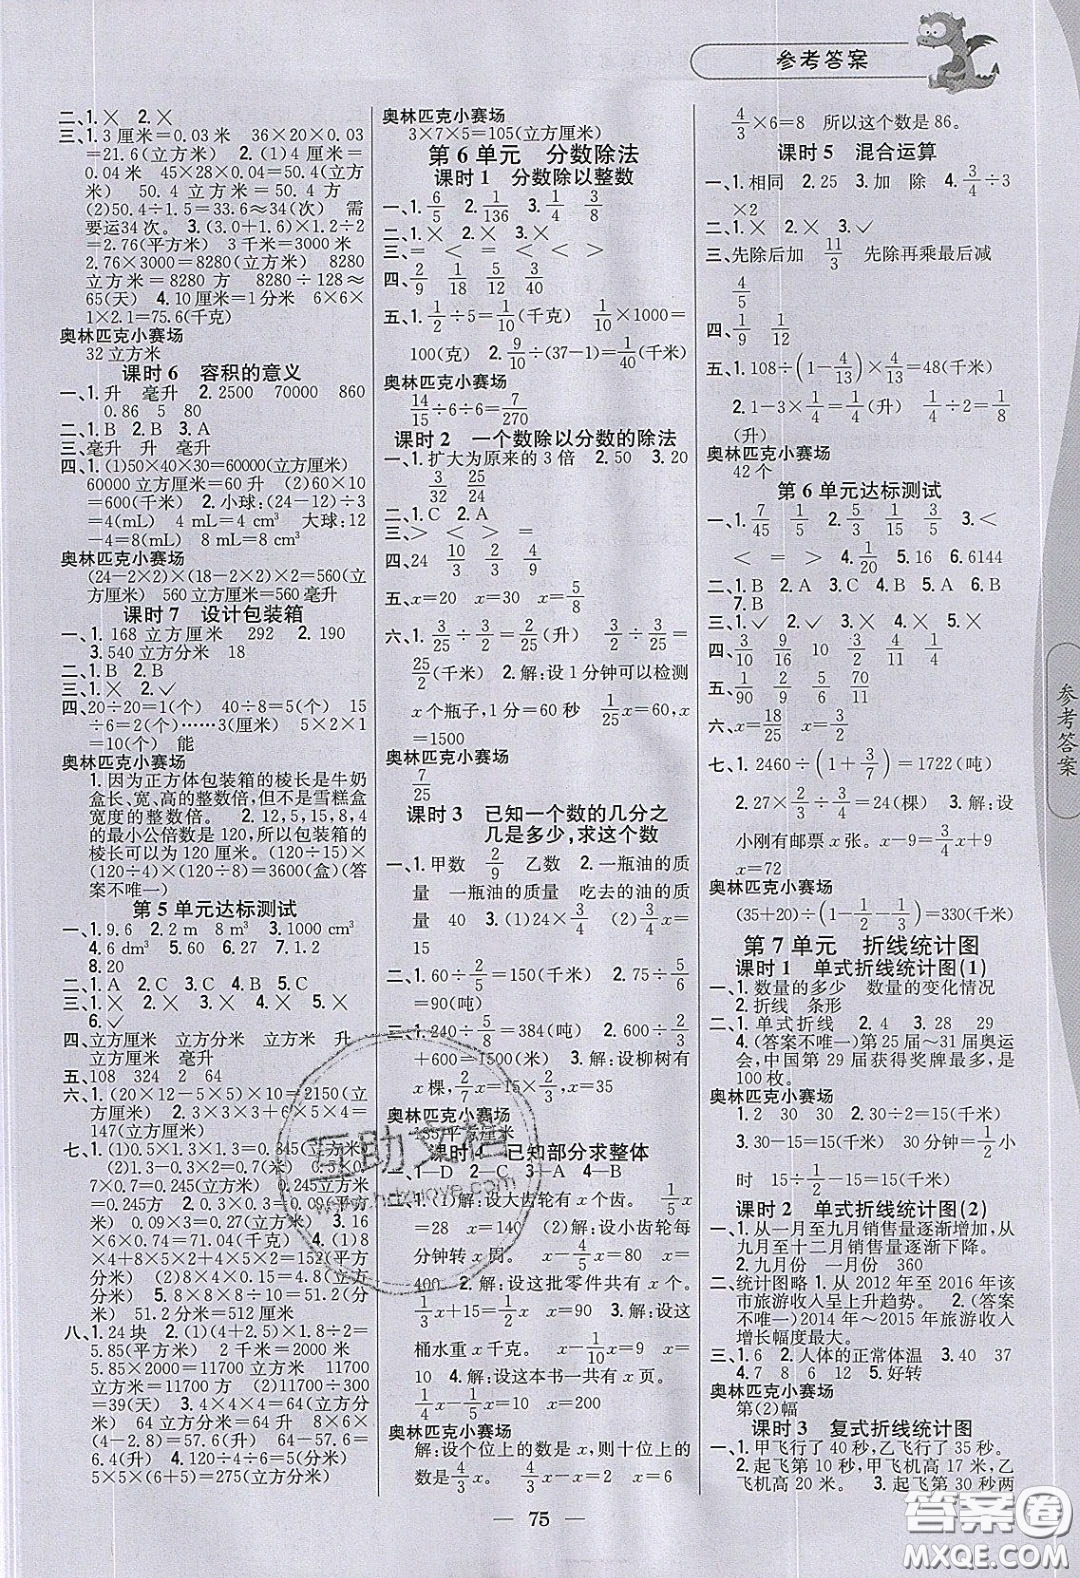 参考答案
二、1.× 2.×
三、1.3厘米=0.03米 36×20×0.03
=21.6(立方米) 2.(1)4厘米=
0.04米 45×28×0.04=50.4
(立方米)
(2)50.4÷1.5=33.6≈34(次) 需
要运34次。 3.(3.0+1.6)×1.2÷2
=2.76(平方米) 3千米=3000米
2.76×3000=8280(立方米) 8280
立方米=8280方 8280÷128≈
65(天) 4.10厘米=1分米 6×6×6
×1×2.1=75.6(千克)
奥林匹克小赛场
32立方米
课时6 容积的意义
一、1.升 毫升 2.2500 70000 860
0.86 5 80
二、1.B 2.B 3.A
三、毫升 升 毫升
四、1.(1)50×40×30=60000(立方厘米)
60000立方厘米=60升 (2)60×10
=600(千米) 2.小球:(24-12)÷3
=4(mL) 4 mL=4 cm³ 大球:12
-4=8(mL) 8 mL=8 cm³
奥林匹克小赛场
(24-2×2)×(18-2×2)×2=560(立方
厘米) 560立方厘米=560毫升
课时7 设计包装箱
一、1.168立方厘米 292 2.190
3.540立方分米 18
二、1.B 2.B
三、1.× 2.✓
四、20÷20=1(个) 40÷8=5(个) 15
÷6=2(个)……3(厘米) 5×2×1
=10(个) 能
奥林匹克小赛场
1.因为正方体包装箱的棱长是牛奶
盒长、宽、高的整数倍,但不是雪糕盒
宽度的整数倍。 2.12,5,15,8,4
的最小公倍数是120,所以包装箱的
棱长可以是120厘米。(120÷15)×
(120÷4)×(120÷8)=3600(盒)(答
案不唯一)
第5单元达标测试
一、1.9.6 2.2 m 8 m³ 3.1000 cm³
4.6 dm³ 5.60 6.27 7.1.2
8.20
二、1.A 2.C 3.B 4.B 5.C
三、1.× 2.✓ 3.× 4.× 5.×
6.✓
四、立方厘米 立方分米 立方米 升
立方厘米 毫升
五、108 324 2 64
六、1.(20×12-5×5×2)×10=2150(立
方厘米) 2.3×3×3+6×5×4=
147(立方厘米)
七、1.(1)0.5×1.3×1.3=0.845(立方
米) (2)0.5×1.3×1.3-0.5×1.2
×1=0.245(立方米) (3)0.5×
0.7×0.7=0.245(立方米) 0.245立方米
2.0.09×3=0.27(立方米) 3.16
×6×0.74=71.04(千克) 4.(1)8
×4×4+8×5×2+4×5×2=152(平方
分米) (2)8×4×5=160(立方分
米) 5.8×8×8÷10=51.2(立方
分米) 51.2立方分米=512厘米
八、1.24块 2.(1)(4+2.5)×1.8÷2=
5.85(平方米) 2千米=2000米
5.85×2000=11700(立方米) 11700
立方米=11700方 (2)11700÷300=
39(天) 3.(1)5×3.2×4=64(立方
分米) 64立方分米=64升 8×6×
(4-2.8)=57.6(升) 64-57.6=
6.4(升) 4.120÷4÷(6+5+4)=2
5×5×(6+5)=275(立方分米)
奥林匹克小赛场
3×7×5=105(立方厘米)
第6单元 分数除法
课时1 分数除以整数
一、1.6/5 2.1/136 3.1/4 3/8
二、1.× 2.✓ 3.×
三、= < = < < >
四、2/9 1/18 5/12 5/39
五、1.1/2÷5=1/10(千克) 1/10×1000=
100(克) 2.9/10÷(37-1)=1/40(千米)
奥林匹克小赛场
14/15÷6÷6=7/270
课时2 一个数除以分数的除法
一、1.扩大为原来的3倍 2.50 3.20
3/32 25/24
二、1.C 2.A
三、> < > =
四、24 10/3 2/3 4/9
五、x=20 x=12 x=5/8
六、1.3/25÷3/2=2/25(升) 3/2÷3/25=
25/2(千米) 2.解:设1分钟可以检测
x个瓶子,1分=60秒 1/25x=60
x=1500
奥林匹克小赛场
7/25
课时3 已知一个数的几分之
几是多少,求这个数
一、1.甲数 2/9 乙数 2.一瓶油的质
量 一瓶油的质量 吃去的油的质
量 40 3.(1)24×3/4 (2)x×3/4=
15
二、1.60÷2/5=150(千米) 2.75÷5/6
=90(吨)
三、1.240÷5/8=384(吨) 2.600÷2/3
+600=1500(米) 3.解:设柳树有
x棵,2/7x=15×2/3,x=35
奥林匹克小赛场
135平方厘米
课时4 已知部分求整体
一、1.D 2.C 3.A 4.B
二、1.(1)解:设大齿轮有x个齿。1/5x=
28 x=140 (2)解:设小齿轮每
分钟转x周。x-4/5x=80 x=
400 2.解:设这批零件共有x个。
1/3x+15=4/5x x=9 3.解:设这
桶水重x千克。x-1/10x=9 x=10
4.解:设这本书一共有x页。
x-1/4x=150 x=200
奥林匹克小赛场
解:设个位上的数是x,则十位上的
数是4/3x。4/3x-x=2 x=6
4/3×6=8 所以这个数是86。
课时5 混合运算
一、1.相同 2.25 3.加 除 4.3/4÷3
×2
二、1.× 2.× 3.✓
三、先除后加 11/3 先除再乘最后减
4/5
四、1/9 1/12
五、1.108÷(1-4/13)×4/13=48(千米)
2.1-3×1/4=1/4(升) 1/4÷2=1/8
(升)
奥林匹克小赛场
42个
第6单元达标测试
一、1.7/45 1/5 2.5/3 1/15 3/5 3.<
< = > 4.1/20 5.16 6.6144
二、1.B 2.A 3.C 4.B 5.A 6.B
7.B
三、1.✓ 2.✓ 3.× 4.× 5.×
四、3/10 9/16 10 2/3 12
五、1/2 2/9 5/6 70/11
六、x=18/25 x=25 x=3/2
七、1.2460÷(1+3/7)=1722(吨)
2.27×2/3÷3/4=24(棵) 3.解:设
小刚有邮票x张。x-9=3/4x+9
x=72
奥林匹克小赛场
(35+20)÷(1-1/2-1/3)=330(千米)
第7单元 折线统计图
课时1 单式折线统计图(1)
一、1.数量的多少 数量的变化情况
2.折线 条形
二、1.单式折线 2.4 3.28 29
4.(答案不唯一)第25届~31届奥运
会,中国第29届获得奖牌最多,是
100枚。
奥林匹克小赛场
1.2 30 30 2.15÷1=15(千米)
3.30-15=15(千米) 30分钟=1/2小
时 15÷1/2-15=15(千米)
课时2 单式折线统计图(2)
一、1.从一月至九月销售量逐渐增加,从
九月至十二月销售量逐渐下降。
2.九月份 一月份 360
二、统计图略 1.从2012年至2016年该
市旅游收入呈上升趋势。 2.(答案
不唯一)2014年~2015年旅游收入
增长幅度最大。
三、1.6 2.人体的正常体温 3.40 37
4.7 5.8 6.好转
奥林匹克小赛场
第(2)幅
课时3 复式折线统计图
一、1.甲飞行了40秒,乙飞行了35秒。
2.起飞第10秒,甲飞机高17米,乙
飞机高20米。 3.起飞第30秒两
参考答案
75
互助文档
www.hdzuowe.com
答案圈
MXQE.COM